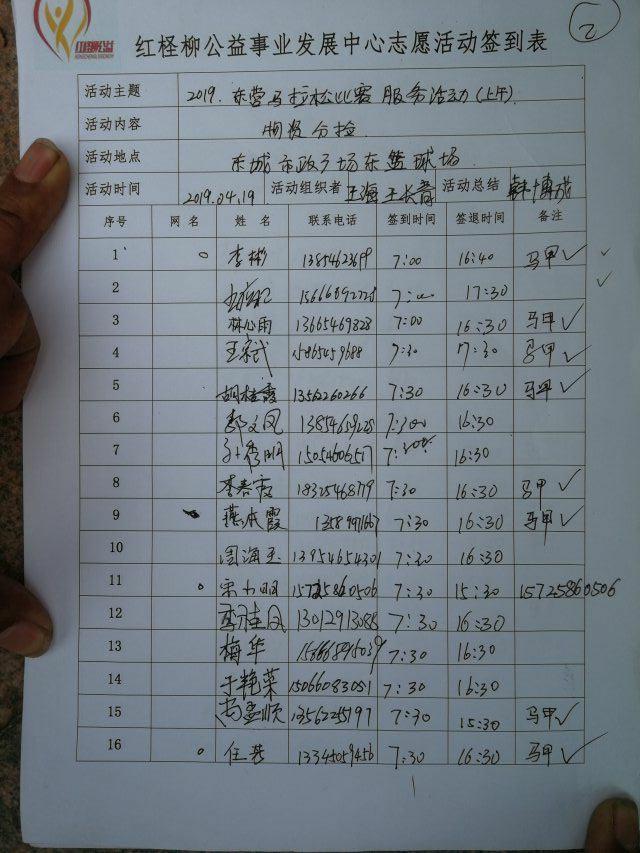 红柽柳公益事业发展中心志愿活动签到表
2
活动主题 2019.东营马拉松比赛 服务活动(上午).
活动内容 物资分捡
活动地点 东城市政广场东篮球场.
活动时间 2019.04.19 活动组织者 王海 王长青 活动总结 韩博成
序号 网名 姓名 联系电话 签到时间 签退时间 备注
1 李彬 7:00 16:40 马甲 ✓ ✓
2 7:00 17:30 ✓
3 林心雨 13665469828 7:00 16:30 马甲 ✓
4 王宗武 15865459688 7:30 17:30 马甲 ✓
5 胡桂霞 13562260266 7:30 16:30 马甲 ✓
6 郭文凤 13854659228 7:30 16:30
7 孙秀明 15054606577 7:30 16:30
8 李春霞 18325468779 7:30 16:30 马甲 ✓
9 燕本霞 7:30 16:30 马甲 ✓
10 周海玉 13954654301 7:30 16:30
11 宋小明 15725860506 7:30 15:30 15725860506
12 李桂凤 13012913088 7:30 16:30
13 梅华 15666895039 7:30 16:30
14 于艳荣 15066083051 7:30 16:30
15 尚孟顺 13562255197 7:30 15:30 马甲 ✓
16 任芸 13345059456 7:30 16:30 马甲 ✓